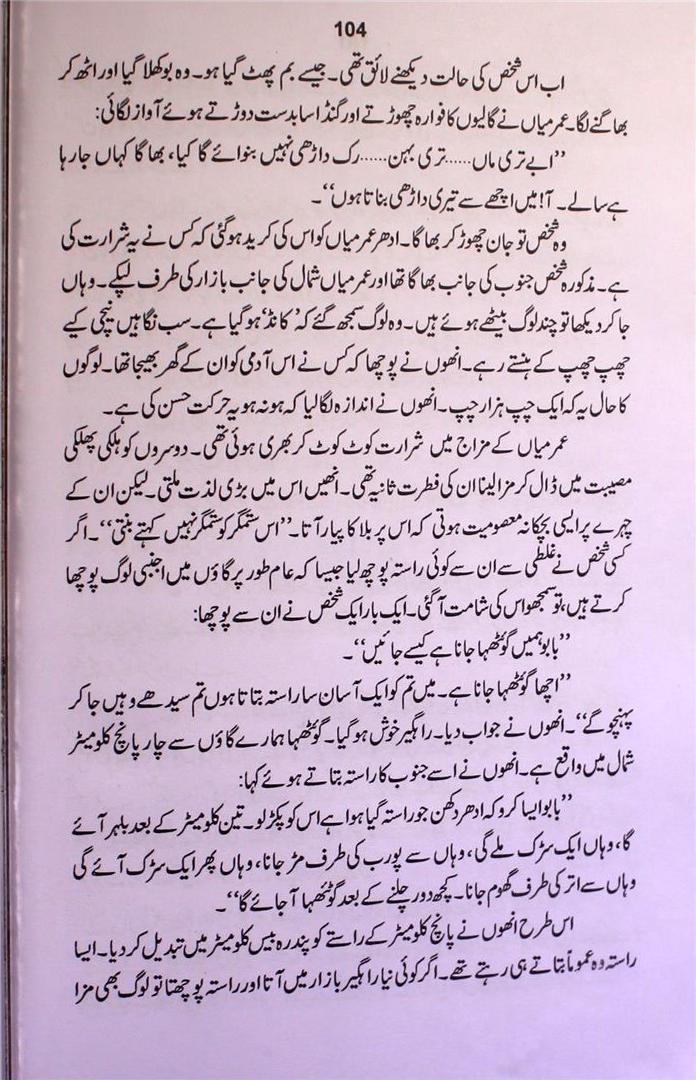 104
اب اس شخص کی حالت دیکھنے لائق تھی۔ جیسے بم پھٹ گیا ہو۔ وہ بوکھلا گیا اور اٹھ کر
بھاگنے لگا۔ عمر میاں نے گالیوں کا فوارہ چھوڑتے اور گنڈاسا بدست دوڑتے ہوئے آواز لگائی:
’’ابے تری ماں......تری بہن......رک داڑھی نہیں بنوائے گا کیا، بھاگا کہاں جا رہا
ہے سالے۔ آ! میں اچھے سے تیری داڑھی بناتا ہوں‘‘۔
وہ شخص تو جان چھوڑ کر بھاگا۔ ادھر عمر میاں کو اس کی کرید ہوگئی کہ کس نے یہ شرارت کی
ہے۔ مذکورہ شخص جنوب کی جانب بھاگا تھا اور عمر میاں شمال کی جانب بازار کی طرف لپکے۔ وہاں
جا کر دیکھا تو چند لوگ بیٹھے ہوئے ہیں۔ وہ لوگ سمجھ گئے کہ ’کانڈ‘ ہو گیا ہے۔ سب نگاہیں نیچی کیے
چھپ چھپ کے ہنستے رہے۔ انھوں نے پوچھا کہ کس نے اس آدمی کو ان کے گھر بھیجا تھا۔ لوگوں
کا حال یہ کہ ایک چپ ہزار چپ۔ انھوں نے اندازہ لگا لیا کہ ہو نہ ہو یہ حرکت حسن کی ہے۔
عمر میاں کے مزاج میں شرارت کوٹ کوٹ کر بھری ہوئی تھی۔ دوسروں کو ہلکی پھلکی
مصیبت میں ڈال کر مزا لینا ان کی فطرت ثانیہ تھی۔ انھیں اس میں بڑی لذت ملتی۔ لیکن ان کے
چہرے پر ایسی بچکانہ معصومیت ہوتی کہ اس پر بلا کا پیار آتا۔ ’’اس ستمگر کو ستمگر نہیں کہتے بنتی‘‘۔ اگر
کسی شخص نے غلطی سے ان سے کوئی راستہ پوچھ لیا جیسا کہ عام طور پر گاؤں میں اجنبی لوگ پوچھا
کرتے ہیں، تو سمجھو اس کی شامت آگئی۔ ایک بار ایک شخص نے ان سے پوچھا:
’’بابو ہمیں گوٹھہا جانا ہے کیسے جائیں‘‘۔
’’اچھا گوٹھہا جانا ہے۔ میں تم کو ایک آسان سا راستہ بتاتا ہوں تم سیدھے وہیں جا کر
پہنچو گے‘‘۔ انھوں نے جواب دیا۔ راہگیر خوش ہو گیا۔ گوٹھہا ہمارے گاؤں سے چار پانچ کلومیٹر
شمال میں واقع ہے۔ انھوں نے اسے جنوب کا راستہ بتاتے ہوئے کہا:
’’بابو ایسا کرو کہ ادھر دکھن جو راستہ گیا ہوا ہے اس کو پکڑ لو۔ تین کلومیٹر کے بعد بلہر آئے
گا، وہاں ایک سڑک ملے گی، وہاں سے پورب کی طرف مڑ جانا، وہاں پھر ایک سڑک آئے گی
وہاں سے اتر کی طرف گھوم جانا۔ کچھ دور چلنے کے بعد گوٹھہا آ جائے گا‘‘۔
اس طرح انھوں نے پانچ کلومیٹر کے راستے کو پندرہ بیس کلومیٹر میں تبدیل کر دیا۔ ایسا
راستہ وہ عموماً بتاتے ہی رہتے تھے۔ اگر کوئی نیا راہگیر بازار میں آتا اور راستہ پوچھتا تو لوگ بھی مزا